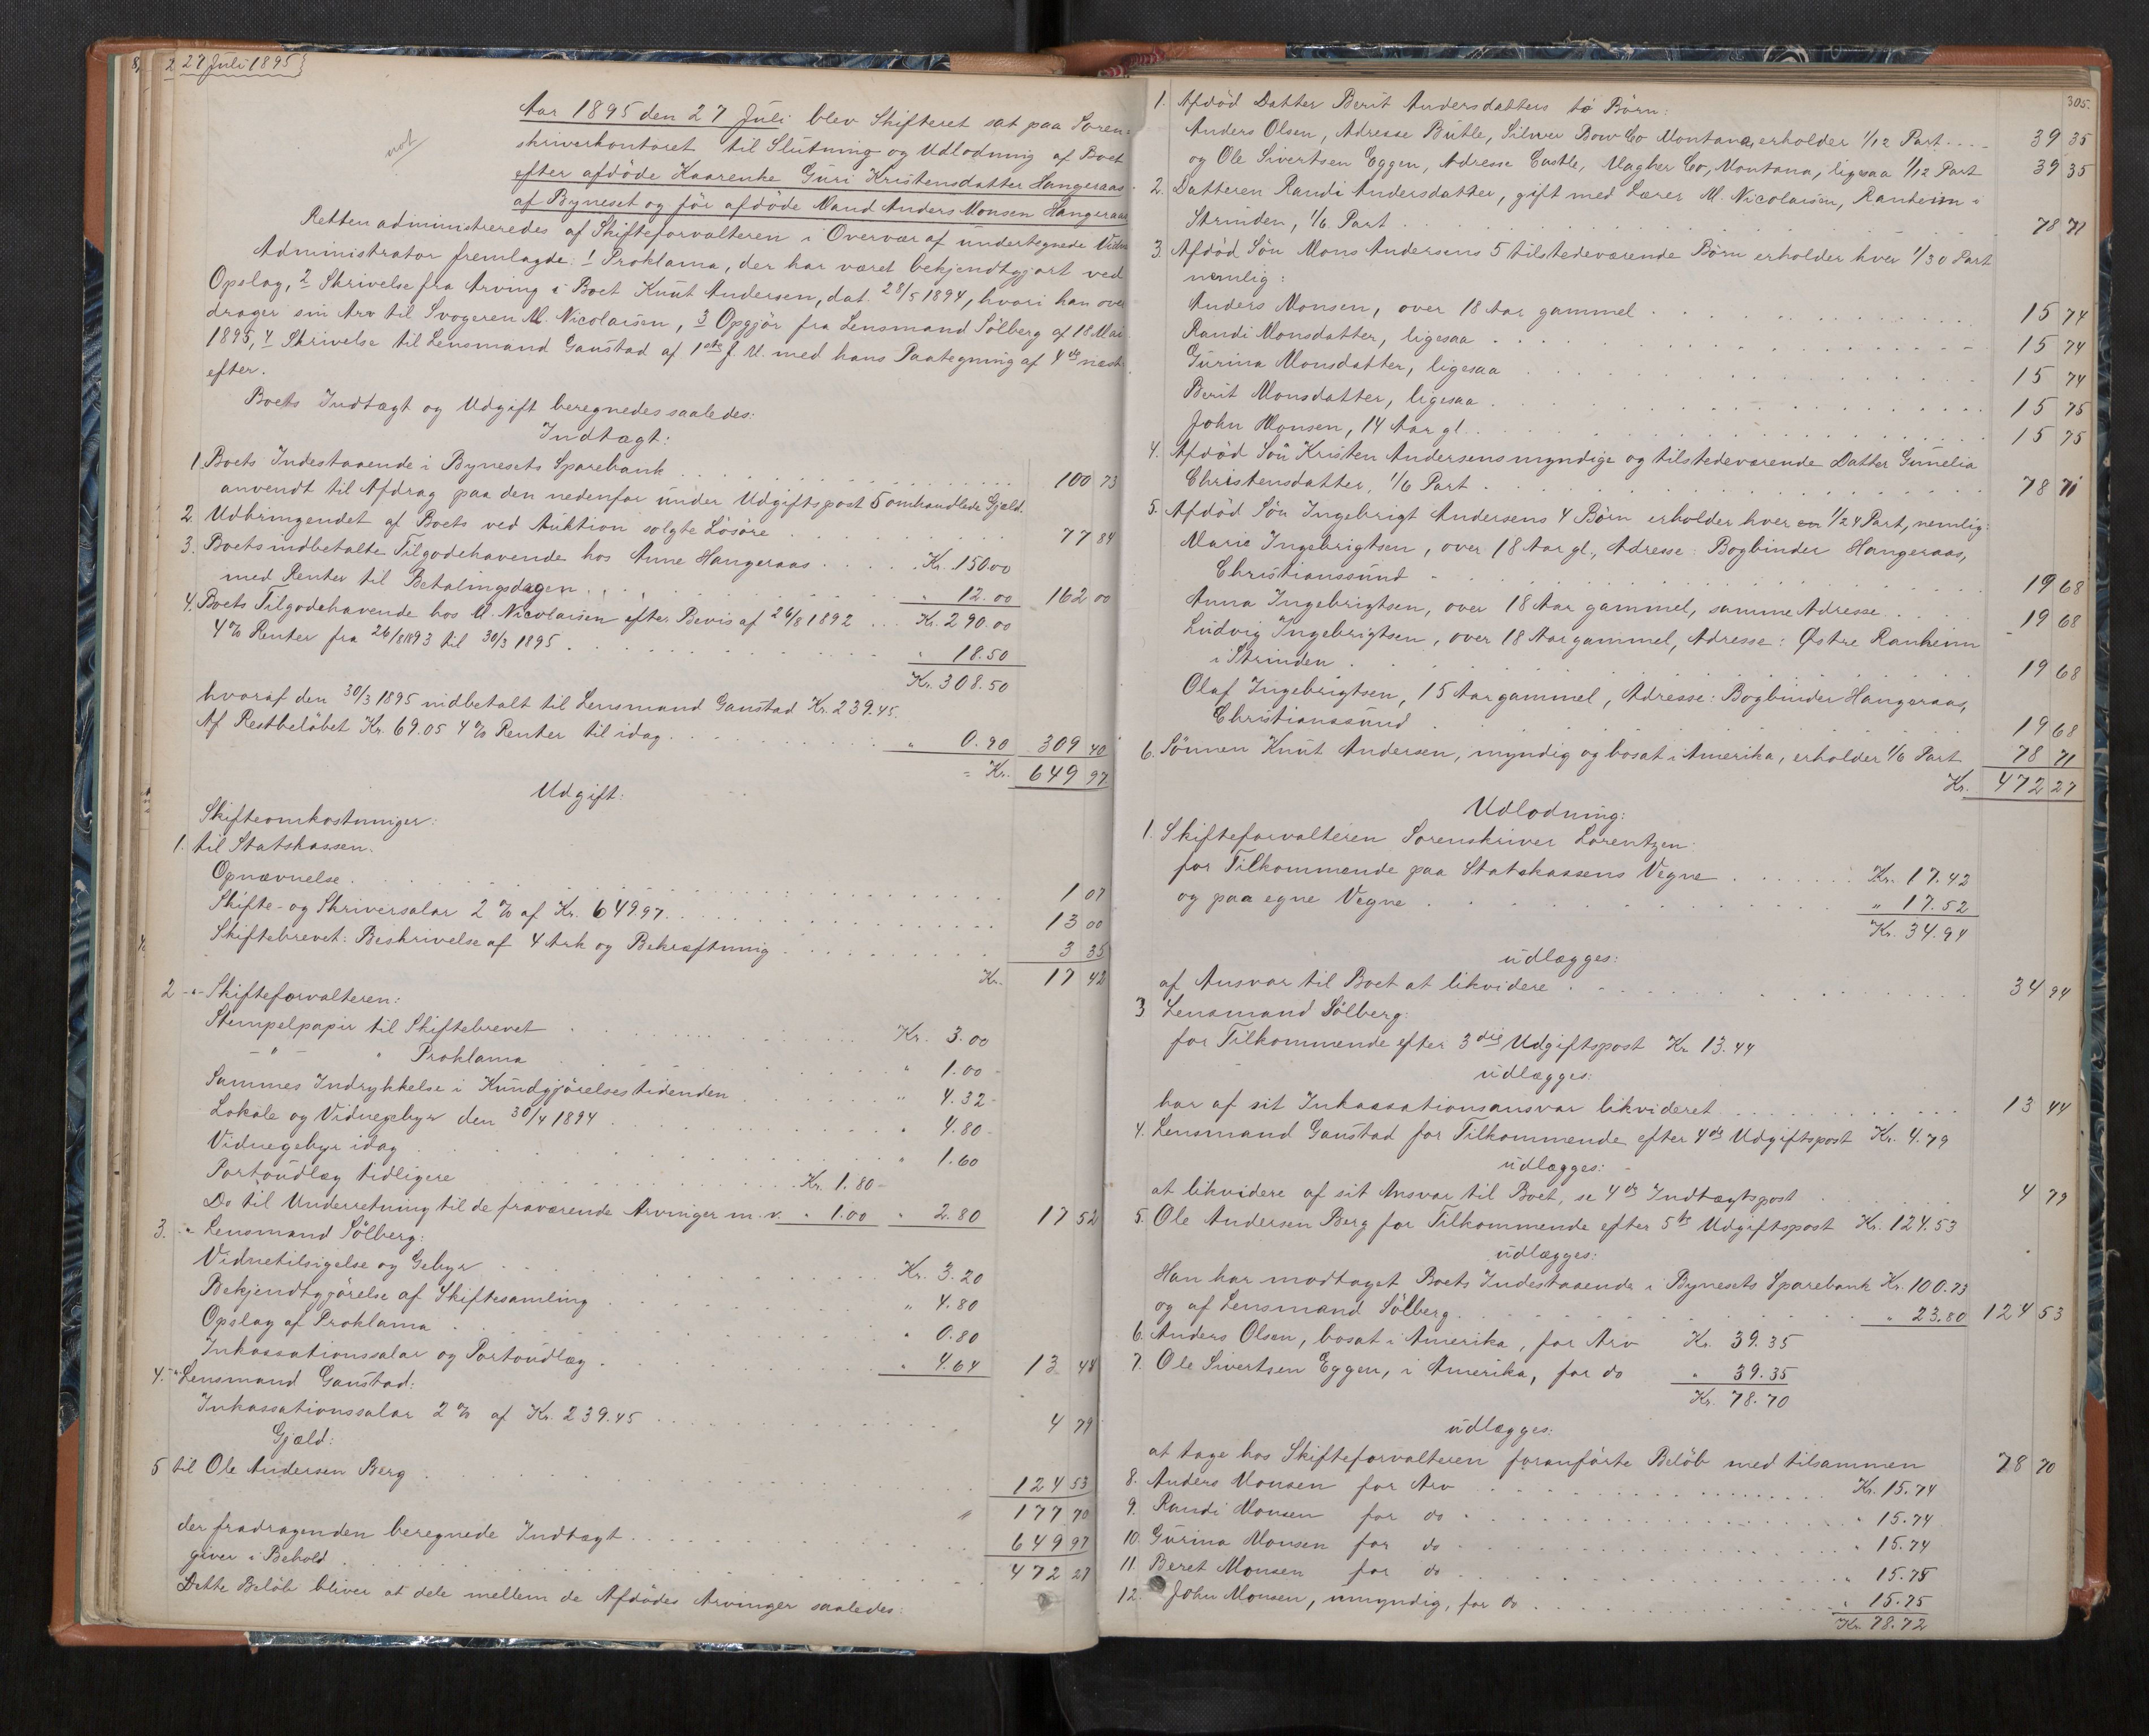 27 Juli 1895
not
Aar 1895 den 27 Juli blev Skifteret sat paa Soren-
skriverkontoret til Slutning og Udlodning af Boet
efter afdöde Kaarenke Guri Kristensdatter Hangeraas
af Byneset og för afdöde Mand Anders Monsen Hangeraas
Retten administreredes af Skifteforvalteren i Overvær af undertegnede Vidner
Administrator fremlagde: 1 Proklama, der har været bekjendtgjort ved
Opslag, 2 Skrivelse fra Arving i Boet Knut Andersen, dat. 28/5 1894, hvori han over
drager sin Arv til Svogeren M. Nicolaisen, 3 Opgjör fra Lensmand Sölberg af 18 Mai
1895, 4 Skrivelse til Lensmand Gaustad af 1ste f. M. med hans Paategning af 4de næst
efter.
Boets Indtægt og Udgift beregnedes saaledes:
Indtægt:
1. Boets Indestaaende i Bynesets Sparebank . . . 100 73
anvendt til Afdrag paa den nedenfor under Udgiftspost 5 omhandlede Gjæld.
2. Udbringendet af Boets ved Auktion solgte Lösöre . . . 77 84
3. Boets indbetalte Tilgodehavende hos Anne Hangeraas . . . Kr. 150.00
med Renter til Betalingsdagen . . . " 12.00 162 00
4. Boets Tilgodehavende hos M. Nicolaisen efter Bevis af 26/8 1892 . . . Kr. 290.00
4 % Renter fra 26/8 1893 til 30/3 1895 . . . " 18.50
Kr. 308.50
hvoraf den 30/3 1895 indbetalt til Lensmand Gaustad Kr. 239.45.
Af Restbelöbet Kr. 69.05 4 % Renter til idag . . . " 0.90 309 40
= Kr. 649 97
Udgift:
Skifteomkostninger:
1. til Statskassen.
Opnævnelse . . . 1 07
Skifte- og Skriversalar 2 % af Kr. 649.97 . . . 13 00
Skiftebrevet: Beskrivelse af 4 Ark og Bekræftning . . . 3 35
Kr. 17 42
2 -"- Skifteforvalteren:
Stempelpapir til Skiftebrevet . . . Kr. 3.00
-"- " Proklama . . . " 1.00
Sammes Indrykkelse i Kundgjörelsestidenden . . . " 4.32
Lokale og Vidnegebyr den 30/4 1894 . . . " 4.80
Vidnegebyr idag . . . " 1.60
Portoudlæg tidligere . . . Kr. 1.80
Do til Underretning til de fraværende Arvinger m. v. " 1.00 " 2.80 17 52
3. " Lensmand Sölberg:
Vidnetilsigelse og Gebyr . . . Kr. 3.20
Bekjendtgjörelse af Skiftesamling . . . " 4.80
Opslag af Proklama . . . " 0.80
Inkassationssalar og Portoudlæg . . . " 4.64 13 44
4. " Lensmand Gaustad:
Inkassationssalar 2 % af Kr. 239.45 . . . 4 79
Gjæld:
5 til Ole Andersen Berg . . . 124 53
177 70
der fradragenden beregnede Indtægt . . . 649 97
giver i Behold . . . 472 27
Dette Belöb bliver at dele mellem de Afdödes Arvinger saaledes:
305.
1. Afdöd Datter Berit Andersdatters to Börn:
Anders Olsen, Adresse Butle, Silver Bow Co Montana, erholder 1/12 Part . . . 39 35
og Ole Sivertsen Eggen, Adresse Castle, Magher Co, Montana, ligesaa 1/12 Part 39 35
2. Datteren Randi Andersdatter, gift med Lærer M. Nicolaisen, Ranheim i
Strinden, 1/6 Part . . . 78 71
3. Afdöd Sön Mons Andersens 5 tilstedeværende Börn erholder hver 1/30 Part
nemlig:
Anders Monsen, over 18 Aar gammel . . . 15 74
Randi Monsdatter, ligesaa . . . 15 74
Gurina Monsdatter, ligesaa . . . 15 74
Berit Monsdatter, ligesaa . . . 15 75
John Monsen, 14 Aar gl. . . . 15 75
4. Afdöd Sön Kristen Andersens myndige og tilstedeværende Datter Gunelia
Christensdatter, 1/6 Part . . . 78 71
5. Afdöd Sön Ingebrigt Andersens 4 Börn erholder hver en 1/24 Part, nemlig:
Marie Ingebrigtsen, over 18 Aar gl., Adresse: Bogbinder Hangeraas,
Christianssund . . . 19 68
Anna Ingebrigtsen, over 18 Aar gammel, samme Adresse . . . 19 68
Ludvig Ingebrigtsen, over 18 Aar gammel, Adresse: Østre Ranheim
i Strinden . . . 19 68
Olaf Ingebrigtsen, 15 Aar gammel, Adresse: Bogbinder Hangeraas,
Christianssund . . . 19 68
6. Sönnen Knut Andersen, myndig og bosat i Amerika, erholder 1/6 Part 78 71
Kr. 472 27
Udlodning:
1. Skifteforvalteren Sorenskriver Lorentzen:
for Tilkommende paa Statskassens Vegne . . . Kr. 17.42
og paa egne Vegne . . . " 17.52
Kr. 34.94
udlægges:
af Ansvar til Boet at likvidere . . . 34 94
3 Lensmand Sölberg:
for Tilkommende efter 3die Udgiftspost Kr. 13.44
udlægges:
har af sit Inkassationsansvar likvideret . . . 13 44
4. Lensmand Gaustad for Tilkommende efter 4de Udgiftspost Kr. 4.79
udlægges:
at likvidere af sit Ansvar til Boet, se 4de Indtægtspost . . . 4 79
5. Ole Andersen Berg for Tilkommende efter 5te Udgiftspost Kr. 124.53
udlægges:
Han har modtaget Boets Indestaaende i Bynesets Sparebank Kr. 100.73
og af Lensmand Sölberg . . . " 23.80 124 53
6. Anders Olsen, bosat i Amerika, for Arv Kr. 39.35
7. Ole Sivertsen Eggen, i Amerika, for do " 39.35
Kr. 78.70
udlægges:
at tage hos Skifteforvalteren foranförte Belöb med tilsammen 78 70
8. Anders Monsen for Arv . . . Kr. 15.74
9. Randi Monsen for do . . . " 15.74
10. Gurina Monsen for do . . . " 15.74
11. Beret Monsen for do . . . " 15.75
12. John Monsen, umyndig, for do . . . " 15.75
Kr. 78.72